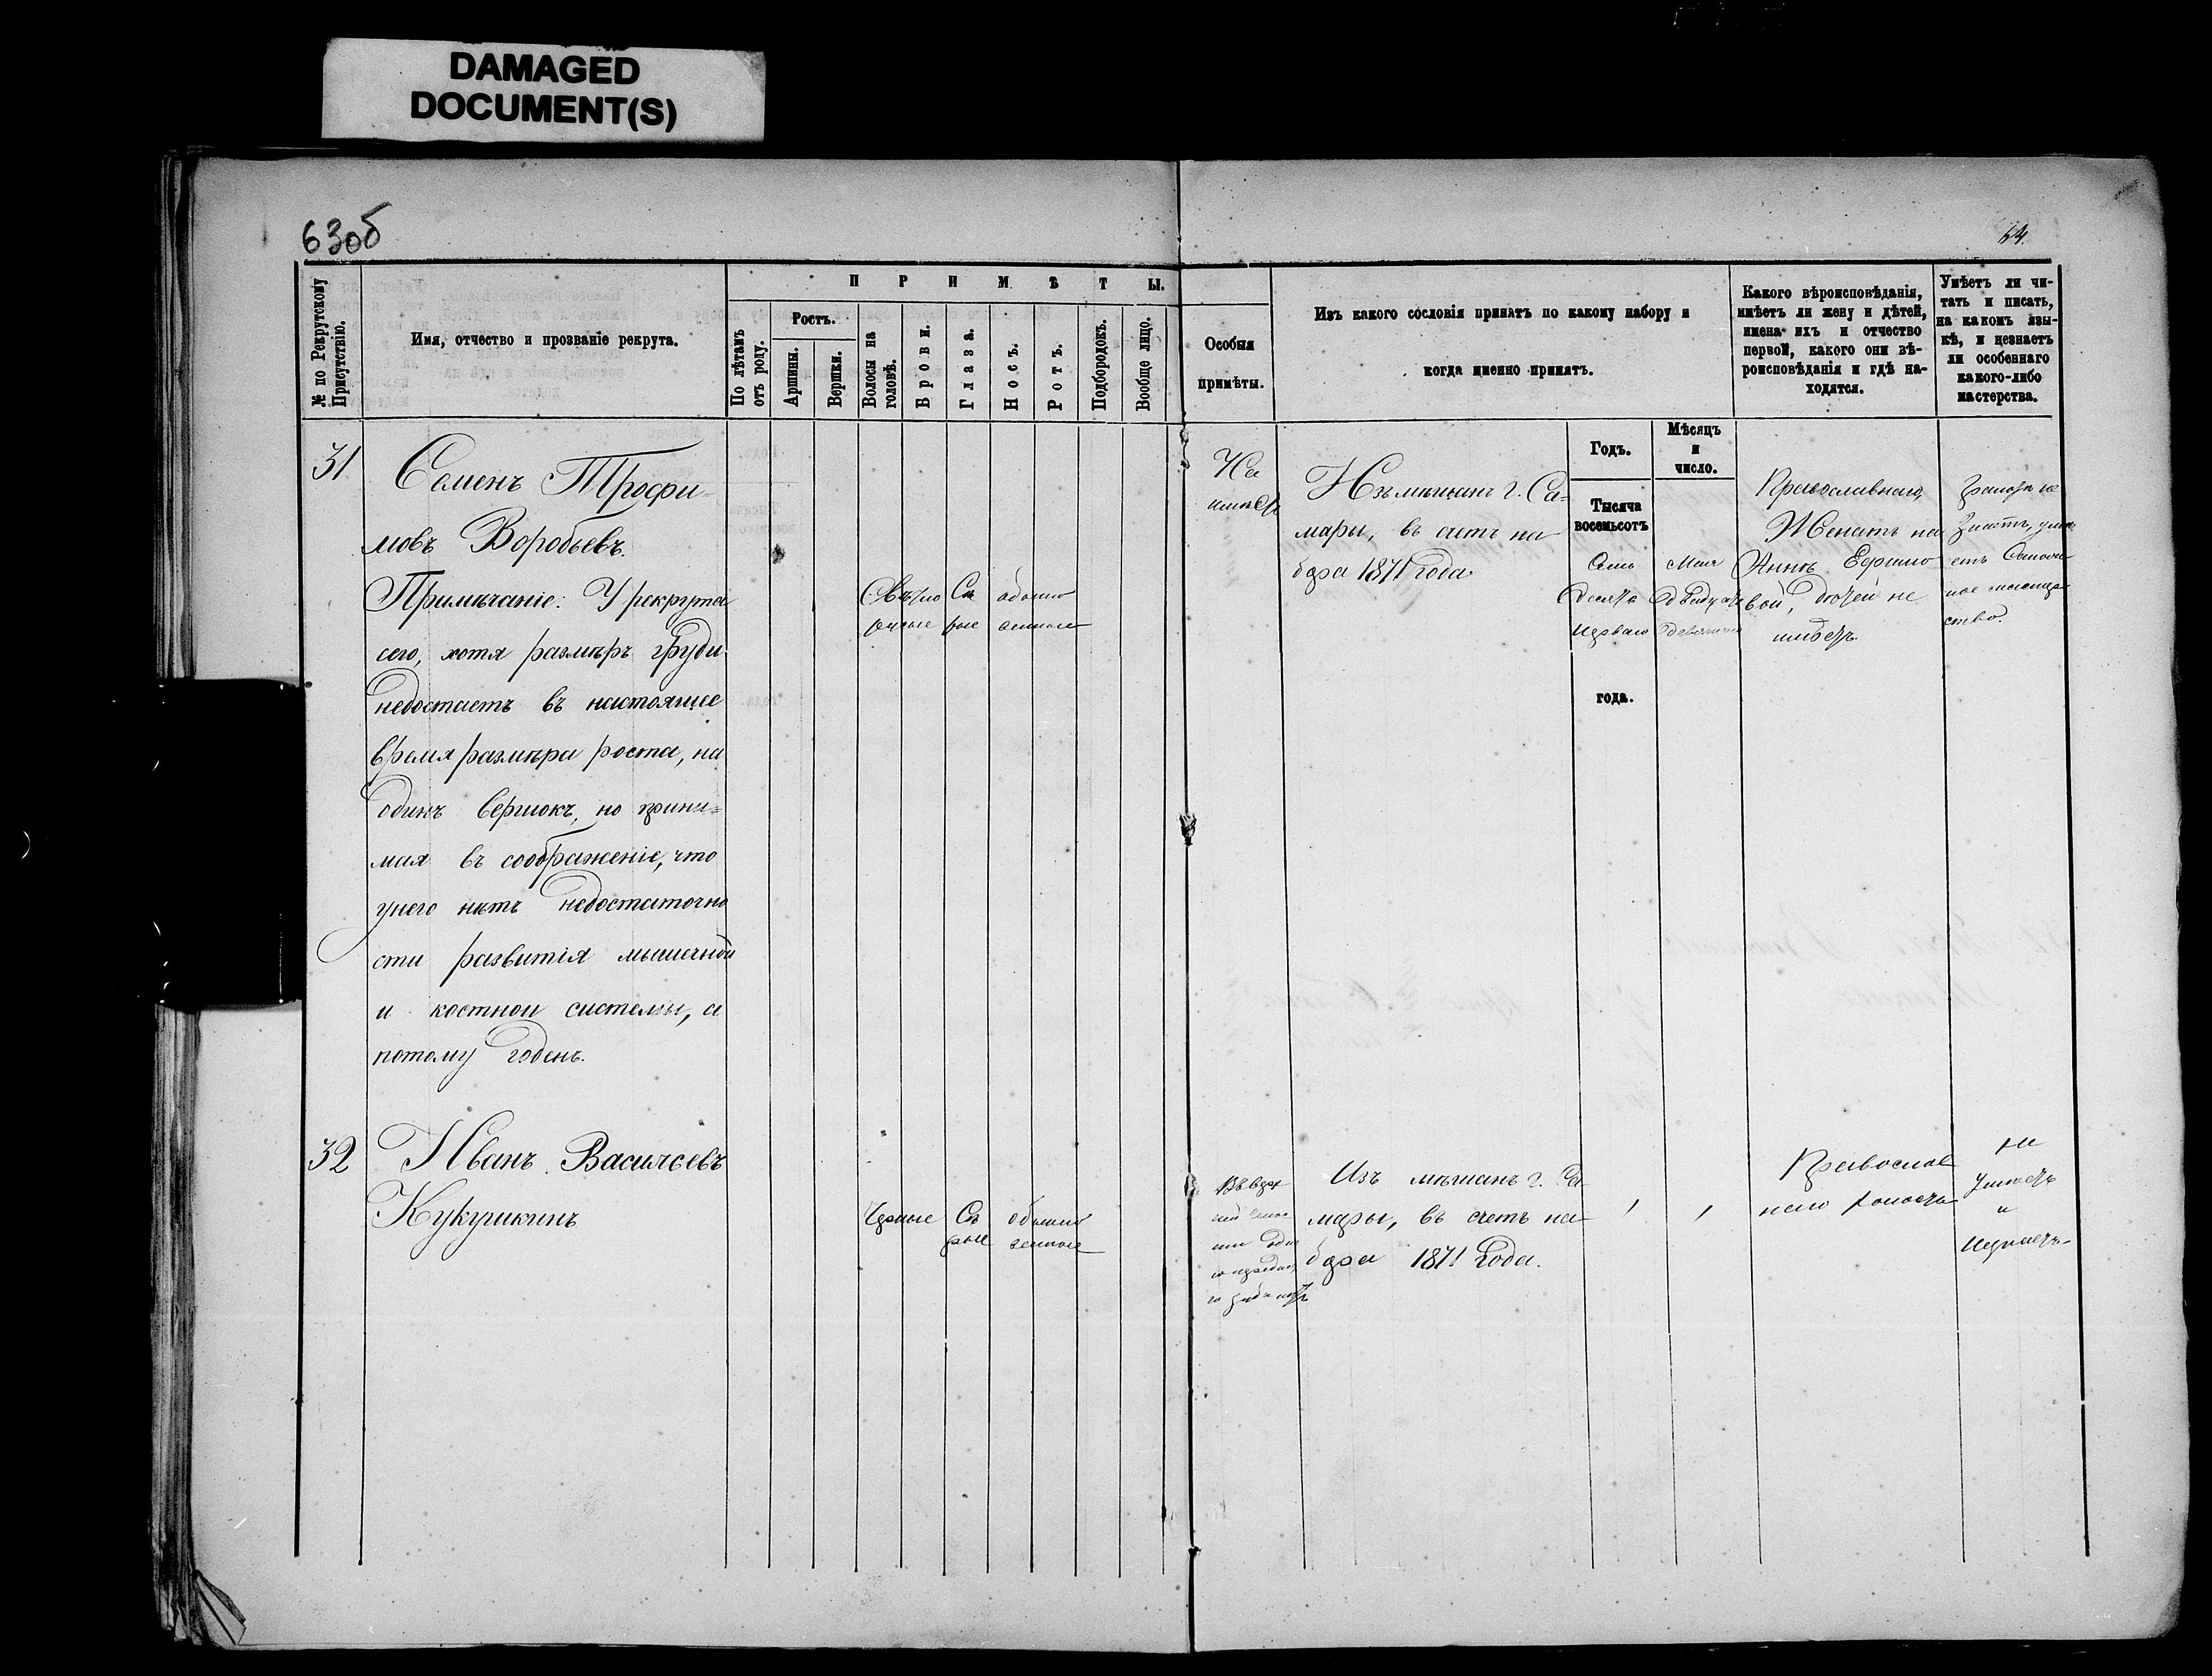 DAMAGED
DOCUMENT(S)
63об
64.
№ по Рекрутскому
Присутствію.
Имя, отчество и прозваніе рекрута.
ПРИМѢТЫ.
По лѣтамъ
отъ роду.
Ростъ.
Аршины.
Вершки.
Волосы на
головѣ.
Брови.
Глаза.
Носъ.
Ротъ.
Подбородокъ.
Вообще лицо.
Особыя
примѣты.
Изъ какого сословія принятъ по какому набору и
когда именно принятъ.
Какого вѣроисповѣданія,
имѣетъ ли жену и дѣтей,
имена ихъ и отчество
первой, какого они вѣ-
роисповѣданія и гдѣ на-
ходятся.
Умѣетъ ли чи-
тать и писать,
на какомъ язы-
кѣ, и незнаетъ
ли особеннаго
какого-либо
мастерства.
31
Семенъ Трофи-
мовъ Воробьевъ.
Примѣчаніе: У рекрута
сего, хотя размѣръ груди
недостаетъ въ настоящее
время размѣра роста, на
одинъ вершокъ, но прини-
мая въ соображеніе, что
унего нѣтъ недостаточно
сти развитія мышечной
и костной системы, а
потому годенъ.
Свѣтло Сѣ обыкно
русые рые венные
Не
имѣетъ
Изъ мѣщанъ г. Са-
мары, въ счетъ на
бора 1871 года.
Годъ.
Тысяча
восемьсотъ
Семь
десятъ
перваго
года.
Мѣсяцъ
и
число.
Мая
двадцать
девятаго
Православнаго,
Женатъ на
Аннѣ Ефимо
вой, дѣтей не
имѣетъ.
Грамотѣ не
знаетъ, умѣ
етъ сапож
ное мастер
ство.
32
Иванъ Васильевъ
Кукушкинъ
Черные Сѣ обыкно
рые венные
Въ верх
ней челюс
ти одно
го передня
го зуба нѣтъ
Изъ мѣщанъ г. Са
мары, въ счетъ на
бора 1871 года.
Православ
наго холостъ
не
умѣетъ
и